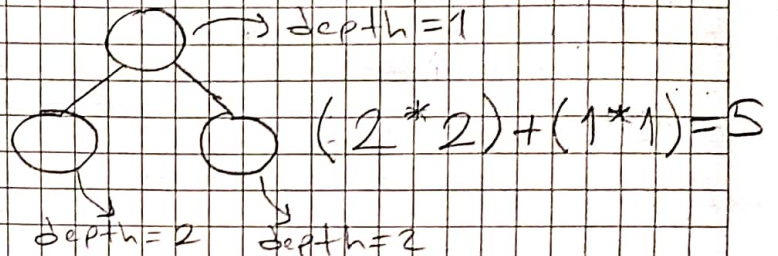 depth=1
(2*2)+(1*1)=5
depth=2
depth=2